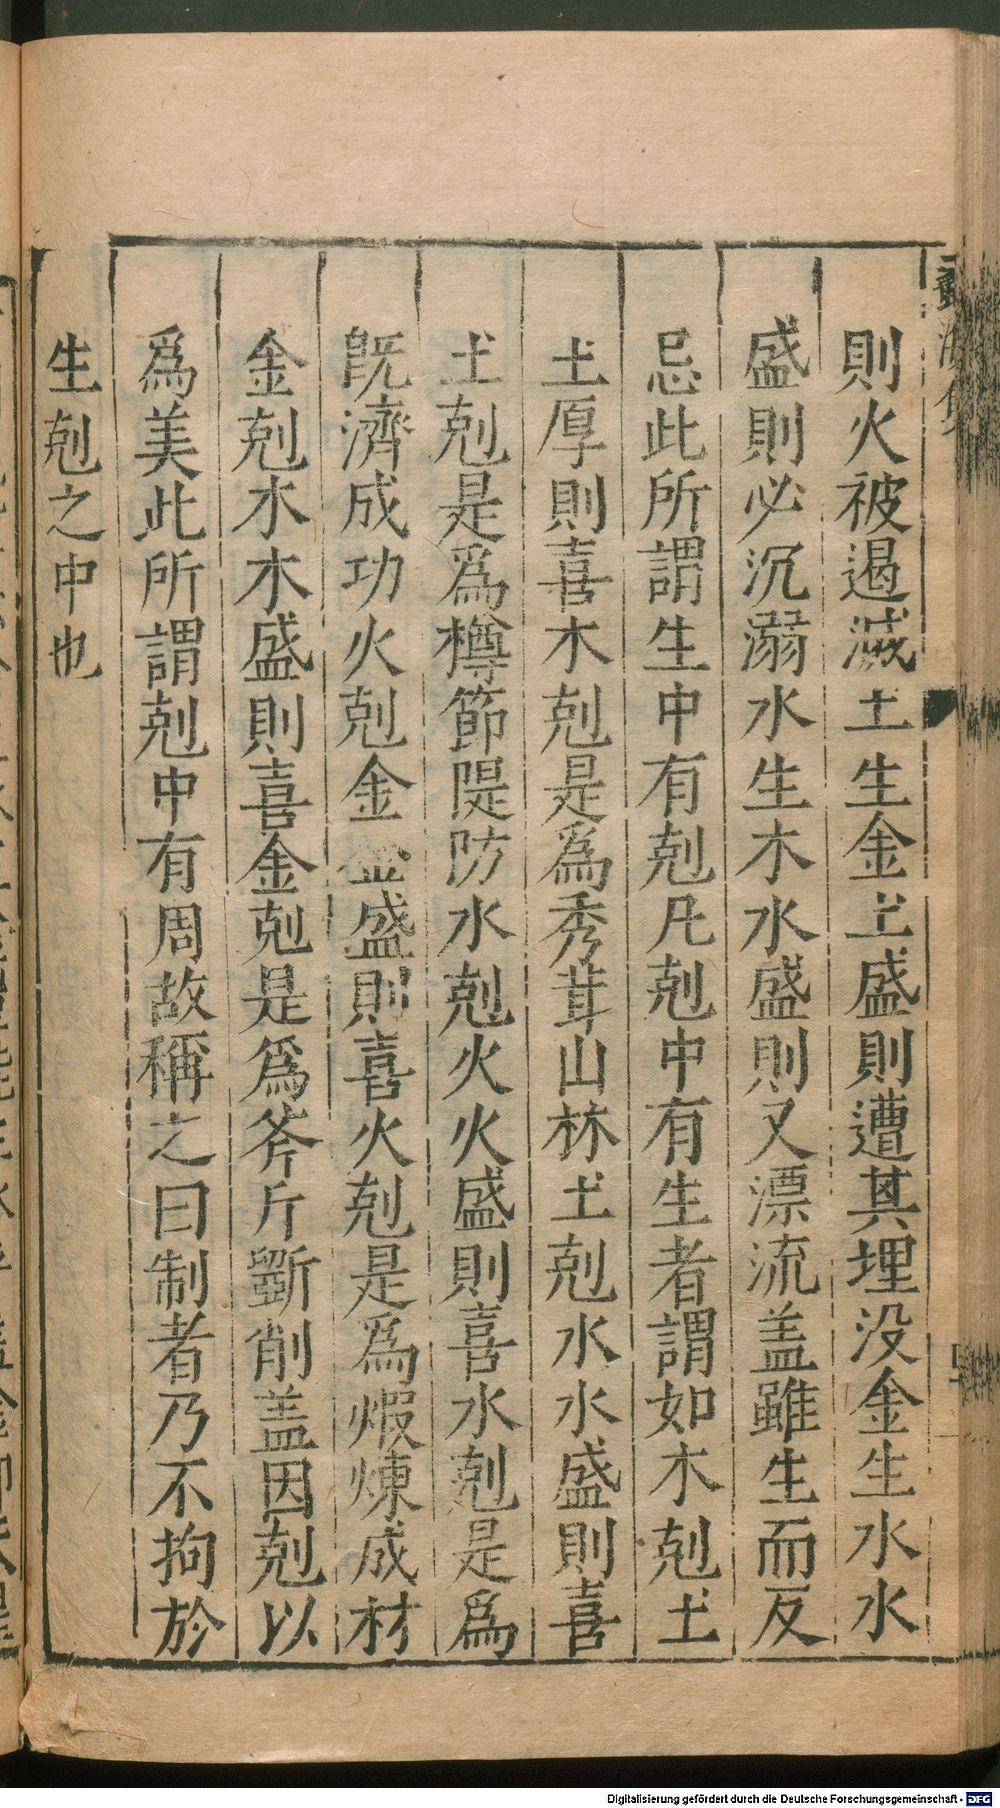 則火被遏滅土生金土盛則遭其埋没金生水水
盛則必沉溺水生木水盛則又漂流盖雖生而反
忌此所謂生中有剋凡剋中有生者謂如木剋土
土厚則喜木剋是為秀茸山林土剋水水盛則喜
土剋是為樽節隄防水剋火火盛則喜水剋是為
既濟成功火剋金金盛則喜火剋是為煆煉成材
金剋木木盛則喜金剋是為斧斤斵削盖因剋以
為美此所謂剋中有周故稱之曰制者乃不拘於
生剋之中也
Digitalisierung gefördert durch die Deutsche Forschungsgemeinschaft - DFG